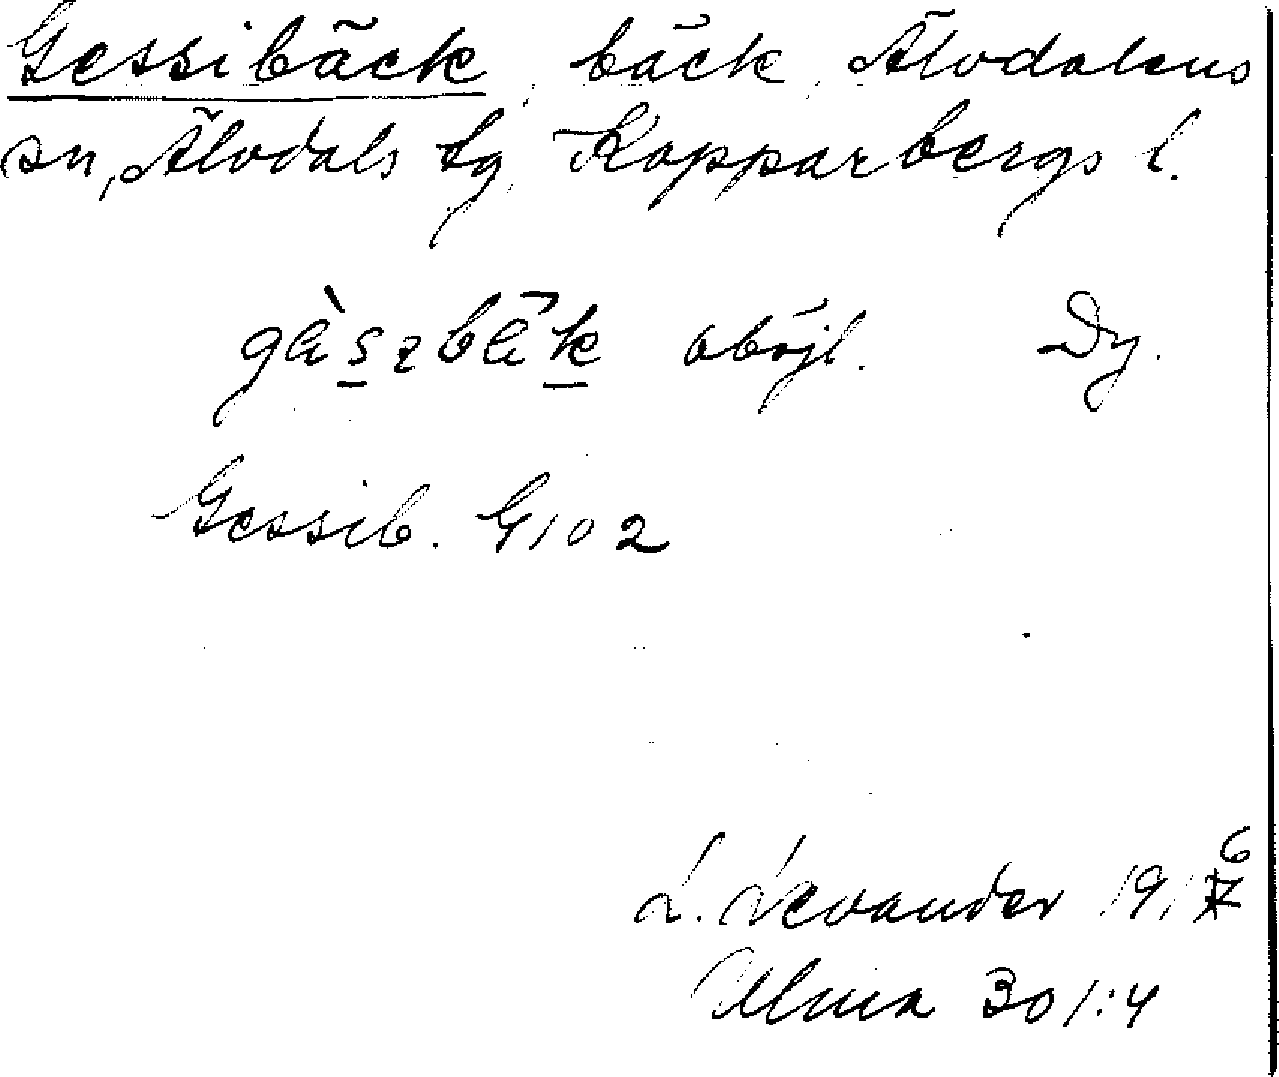 Gessibäck, bäck, Älvdalens
sn, Älvdals tg, Kopparbergs l.
gässbäk oböjl. Dy.
Gessib. G102
L. Levander 1916
Ulma 301:4